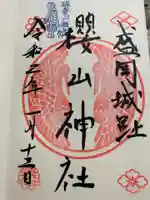 盛岡城跡
櫻山神社
令和二年一月十三日